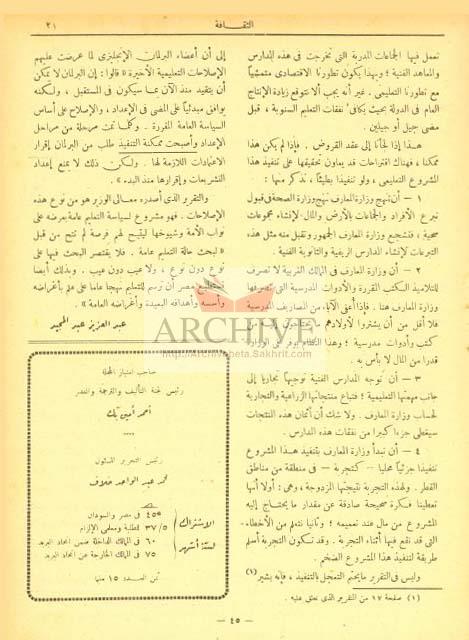 ٢١
الثقافة
تعمل فيها الجماعات المدربة التى تخرجت فى هذه المدارس
والمعاهد الفنية؛ وبهذا يكون تطورنا الاقتصادى متمشيًا
مع تطورنا التعليمى. غير أنه يجب ألا نتوقع زيادة الإنتاج
العام فى الدولة بحيث يكافئ نفقات التعليم السنوية، قبل
مضى جيل أو جيلين.
هذا إذا لجأنا إلى عقد القروض. فإذا لم يكن هذا
ممكنا، فهناك اقتراحات قد يعاون تحقيقها على تنفيذ هذا
المشروع التعليمى، ولو تنفيذا بطيئا، نذكر منها:
١ – أن تنهج وزارة المعارف نهج وزارة الصحة فى قبول
تبرع الأفراد والجماعات بالأرض والمال لإنشاء مجموعات
صحية، فتشجيع وزارة المعارف الجمهور وتقبل منه مثل هذه
التبرعات لإنشاء المدارس الريفية والثانوية الفنية.
٢ – أن وزارة المعارف فى الممالك الغربية لا تصرف
للتلاميذ الكتب المقررة والأدوات المدرسية التى تصرفها
وزارة المعارف هنا. فإذا أعفى الآباء من المصاريف المدرسية
فلا أقل من أن يشتروا لأولادهم ما يحتاجون إليه من
كتب وأدوات مدرسية؛ وهذا النظام يوفر على الوزارة
قدرا من المال لا بأس به.
٣ – أن توجه المدارس الفنية توجيها تجاريا إلى
جانب مهمتها التعليمية؛ فتباع منتجاتها الزراعية والتجارية
لحساب وزارة المعارف. ولا شك أن أثمان هذه المنتجات
سيغطى جزءا كبيرا من نفقات هذه المدارس.
٤ – أن تبدأ وزارة المعارف بتنفيذ هذا المشروع
تنفيذا جزئيا محليا – كتجربة – فى منطقة من مناطق
القطر. ولهذه التجربة نتيجتها المزدوجة، وهى: أولا أنها
تعطينا فكرة صحيحة صادقة عن مقدار ما يحتاج إليه
المشروع من مال عند تعميمه؛ وثانيا نتعلم من الأخطاء
التى قد نقع فيها أثناء التجربة. وقد تكون التجربة أسلم
طريقة لتنفيذ هذا المشروع الضخم.
وليس فى التقرير ما يحتم التعجل بالتنفيذ، فإنه يشير (١)
(١) صفحة ١٧ من التقرير الذى نعلق عليه.
إلى أن أعضاء البرلمان الإنجليزى لما عرضت عليهم
الإصلاحات التعليمية الأخيرة «قالوا: إن البرلمان لا يمكن
أن يتقيد منذ الآن بما سيكون فى المستقبل، ولكنه
يوافق مبدئياً على المضى فى الإعداد، والإصلاح على أساس
السياسة العامة المقررة. وكلما تمت مرحلة من مراحل
الإعداد وأصبحت ممكنة التنفيذ طلب من البرلمان إقرار
الاعتمادات اللازمة لها. ولكن ذلك لا يمنع إعداد
التشريعات وإقرارها منذ البدء».
والتقرير الذى أصدره معالى الوزير هو من نوع هذه
الإصلاحات. فهو مشروع لسياسة التعليم عامة يعرضه على
نواب الأمة وشيوخها ليتيح لهم فرصة لم تتح من قبل
«لبحث حالة التعليم عامة. فلا يقتصر البحث فيها على
نوع دون نوع، ولا عيب دون عيب. وبذلك أيضا
تستطيع مصر أن ترسم للتعليم نهجا عاما على علم بأغراضه
وأسسه وأهدافه البعيدة وأغراضه العامة».
عبد العزيز عبد المجيد
صاحب امتياز المجلة
رئيس لجنة التأليف والترجمة والنشر
أحمد أمين بك
رئيس التحرير المسئول
محمد عبد الواحد خلاف
الاشتراك
لستة أشهر
٤٥ فى مصر والسودان
٣٧/٥ للطلبة ومعلمى الإلزام
٦٠ فى الممالك الداخلة ضمن اتحاد البريد
٧٥ فى الممالك الخارجة عن اتحاد البريد
ثمن العدد ١٥ مليما
— ٤٥ —
ARCHIVE
http://Archivebeta.Sakhrit.com